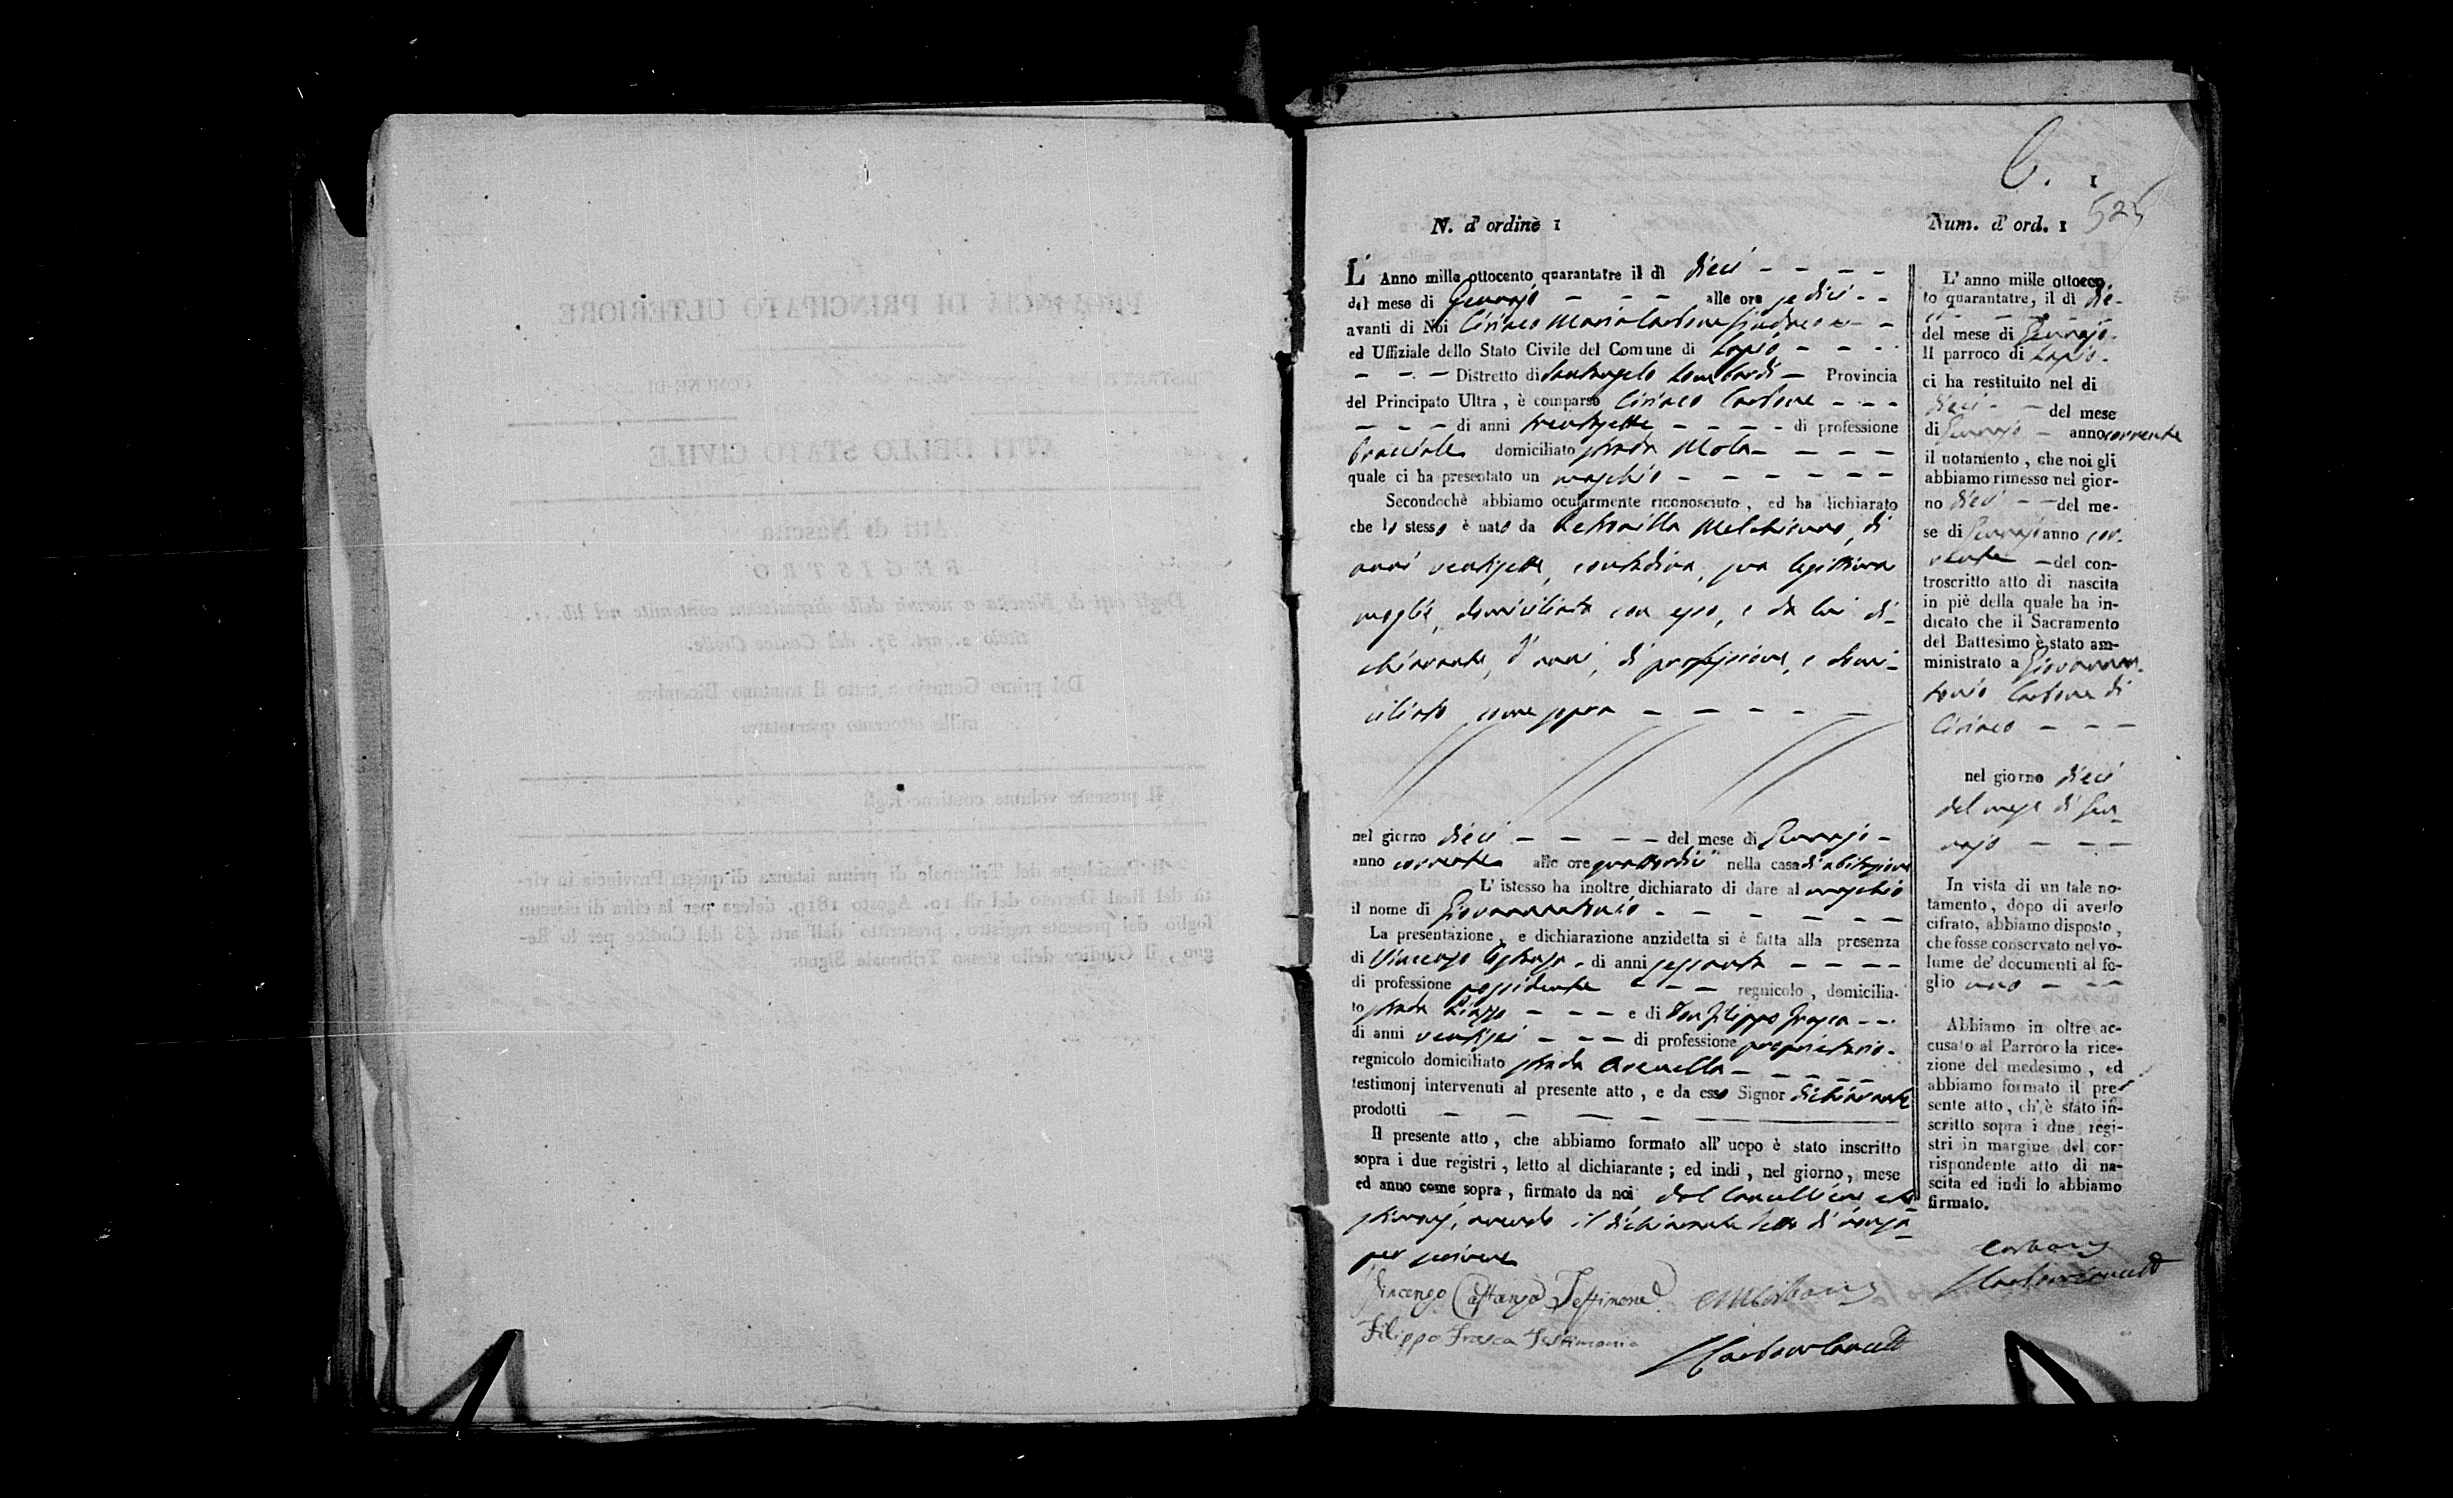 C. 1
525
N. d' ordine 1
L' Anno mille ottocento quarantatre il dì dieci - - - -
del mese di Gennajo - - - alle ore sedici - -
avanti di Noi Ciriaco Maria Carbone Sindaco - -
ed Uffiziale dello Stato Civile del Comune di Lapio - - - -
- - - Distretto di Santangelo Lombardi - Provincia
del Principato Ultra, è comparso Ciriaco Carbone - - -
- - - di anni trentasette - - - - di professione
bracciale domiciliato strada Mola - - - -
quale ci ha presentato un maschio - - - - - -
Secondochè abbiamo ocularmente riconosciuto, ed ha dichiarato
che lo stesso è nato da Petronilla Melchionno, di
anni ventisette, contadina, sua legittima
moglie, domiciliata con esso, e da lui di-
chiarante, d'anni, di professione, e domi-
ciliato come sopra - - - - -
nel giorno dieci - - - - del mese di Gennajo -
anno corrente alle ore quattordici nella casa di abitazione
L' istesso ha inoltre dichiarato di dare al maschio
il nome di Giovannantonio - - - - - -
La presentazione, e dichiarazione anzidetta si è fatta alla presenza
di Vincenzo Castanza - di anni sessanta - - - -
di professione possidente - - - regnicolo, domicilia-
to strada Piazzo - - - e di Don Filippo Frasca - -
di anni ventisei - - - di professione proprietario -
regnicolo domiciliato strada Arenella - - - - -
testimonj intervenuti al presente atto, e da esso Signor dichiarante
prodotti - - - - -
Il presente atto, che abbiamo formato all' uopo è stato inscritto
sopra i due registri, letto al dichiarante; ed indi, nel giorno, mese
ed anno come sopra, firmato da noi dal Cancelliere e te-
stimonj, avendo il dichiarante detto di non sa-
per scrivere
Vincenzo Castanza Testimone
CMCarbone
Filippo Frasca Testimonio
Num. d' ord. 1
L' anno mille ottocen-
to quarantatre, il dì die-
ci - - - -
del mese di Gennajo -
Il parroco di Lapio -
ci ha restituito nel dì
dieci - - del mese
di Gennajo - anno corrente
il notamento, che noi gli
abbiamo rimesso nel gior-
no dieci - - del me-
se di Gennajo anno cor-
rente - del con-
troscritto atto di nascita
in piè della quale ha in-
dicato che il Sacramento
del Battesimo è stato am-
ministrato a Giovannan-
tonio Carbone di
Ciriaco - - -
nel giorno dieci
del mese di Gen-
najo - - -
In vista di un tale no-
tamento, dopo di averlo
cifrato, abbiamo disposto,
che fosse conservato nel vo-
lume de' documenti al fo-
glio uno - - -
Abbiamo in oltre ac-
cusato al Parroco la rice-
zione del medesimo, ed
abbiamo formato il pre-
sente atto, ch' è stato in-
scritto sopra i due regi-
stri in margine del cor-
rispondente atto di na-
scita ed indi lo abbiamo
firmato.
Carbone